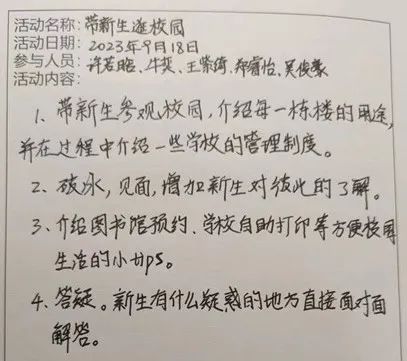 活动名称：带新生逛校园
活动日期：2023年9月18日
参与人员：许若晗、牛奕、王紫琦、郑睿怡、吴俊豪
活动内容：
1、带新生参观校园，介绍每一栋楼的用途，
并在过程中介绍一些学校的管理制度。
2、破冰，见面，增加新生对彼此的了解。
3、介绍图书馆预约、学校自助打印等方便校园
生活的小tips。
4、答疑。新生有什么疑惑的地方直接面对面
解答。